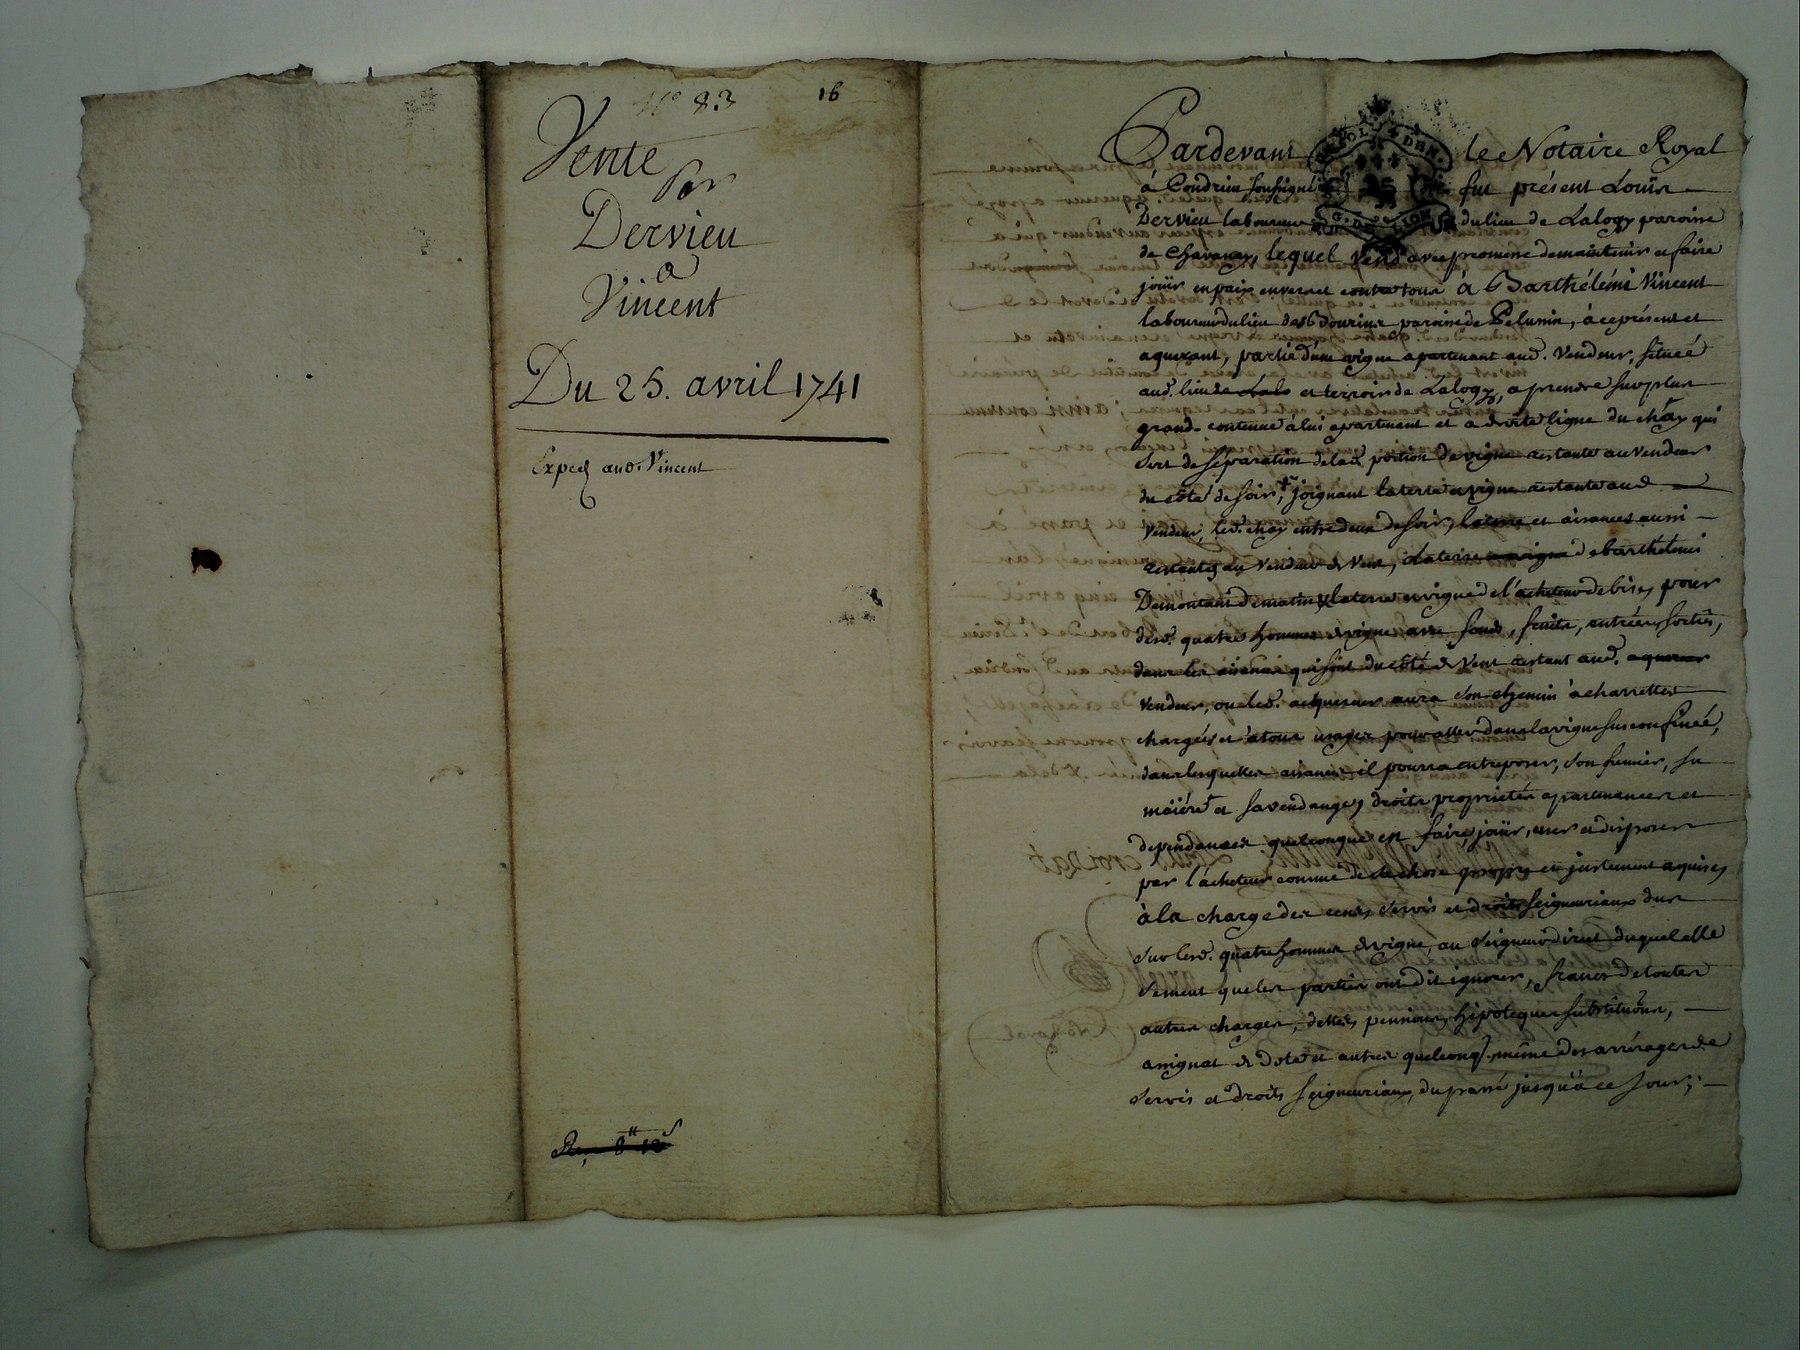 N° 83
16
Vente
Par
Dervieu
a
Vincent
Du 25. avril 1741
Exped aud. Vincent
Pardevant le Notaire Royal
à Condrieu soussigné fut présent Louis
Dervieu laboureur du lieu de Lalogy paroisse
de Chavanay, lequel vend avec promesse de maintenir et faire
joüir en paix envers et contre tous à Barthélémi Vincent
laboureur du lieu des Bourins paroisse de Pelussin, à ce présent et
aquerant, partie d'une vigne apartenant aud. Vendeur, situeé
aud. lieu de et terroir de Lalogy, a prendre sur plus
grande contenue à lui apartenant et a droite ligne du char qui
sert de séparation de lad. portion de vigne restante au vendeur
du coté de soir, + joignant la terre et vigne restante aud
Vendeur, led. char entredeux de soir, la terre et aisances aussi
restantes au Vendeur de Vent, la terre de Barthélemi
Demontant de matin & la terre et vigne de l'acheteur de bise, pour
desd. quatre hommes de vigne avec fonds, fruits, entrées, sorties,
dans les aisances qui sont du coté de Vent restant aud. aquereur
Vendeur, ou led. acquereur aura son chemin à charrettes
chargées et à tous usages pour aller dans la vigne sus confineé,
dans lesquelles aisances il pourra entreposer, son fumier, sa
et sa vendange, droits proprietés apartenances et
dependances quelconques en faire, joüir, user et disposer
par l'acheteur comme de chose propre et justement aquise,
à la charge des cens, servis et droits seigneuriaux dus
sur lesd. quatre hommes de vigne, au seigneur direct duquel elle
se meut que les parties ont dit ignorer, francs de toutes
autres charges, dettes, pensions, hipoteques substitutions,
assignat de dote et autres quelconq. même des arrérages de
servis et droits seigneuriaux, du passé jusqu'à ce jour;